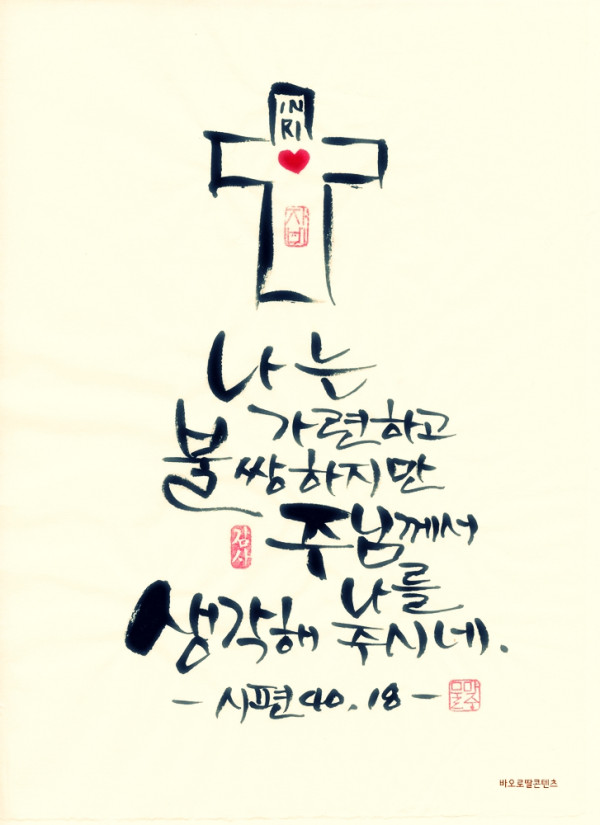 IN
RI
자비
나는
가련하고
불쌍하지만
주님께서
감사
나를
생각해 주시네.
- 시편 40.18 -
바오로딸콘텐츠